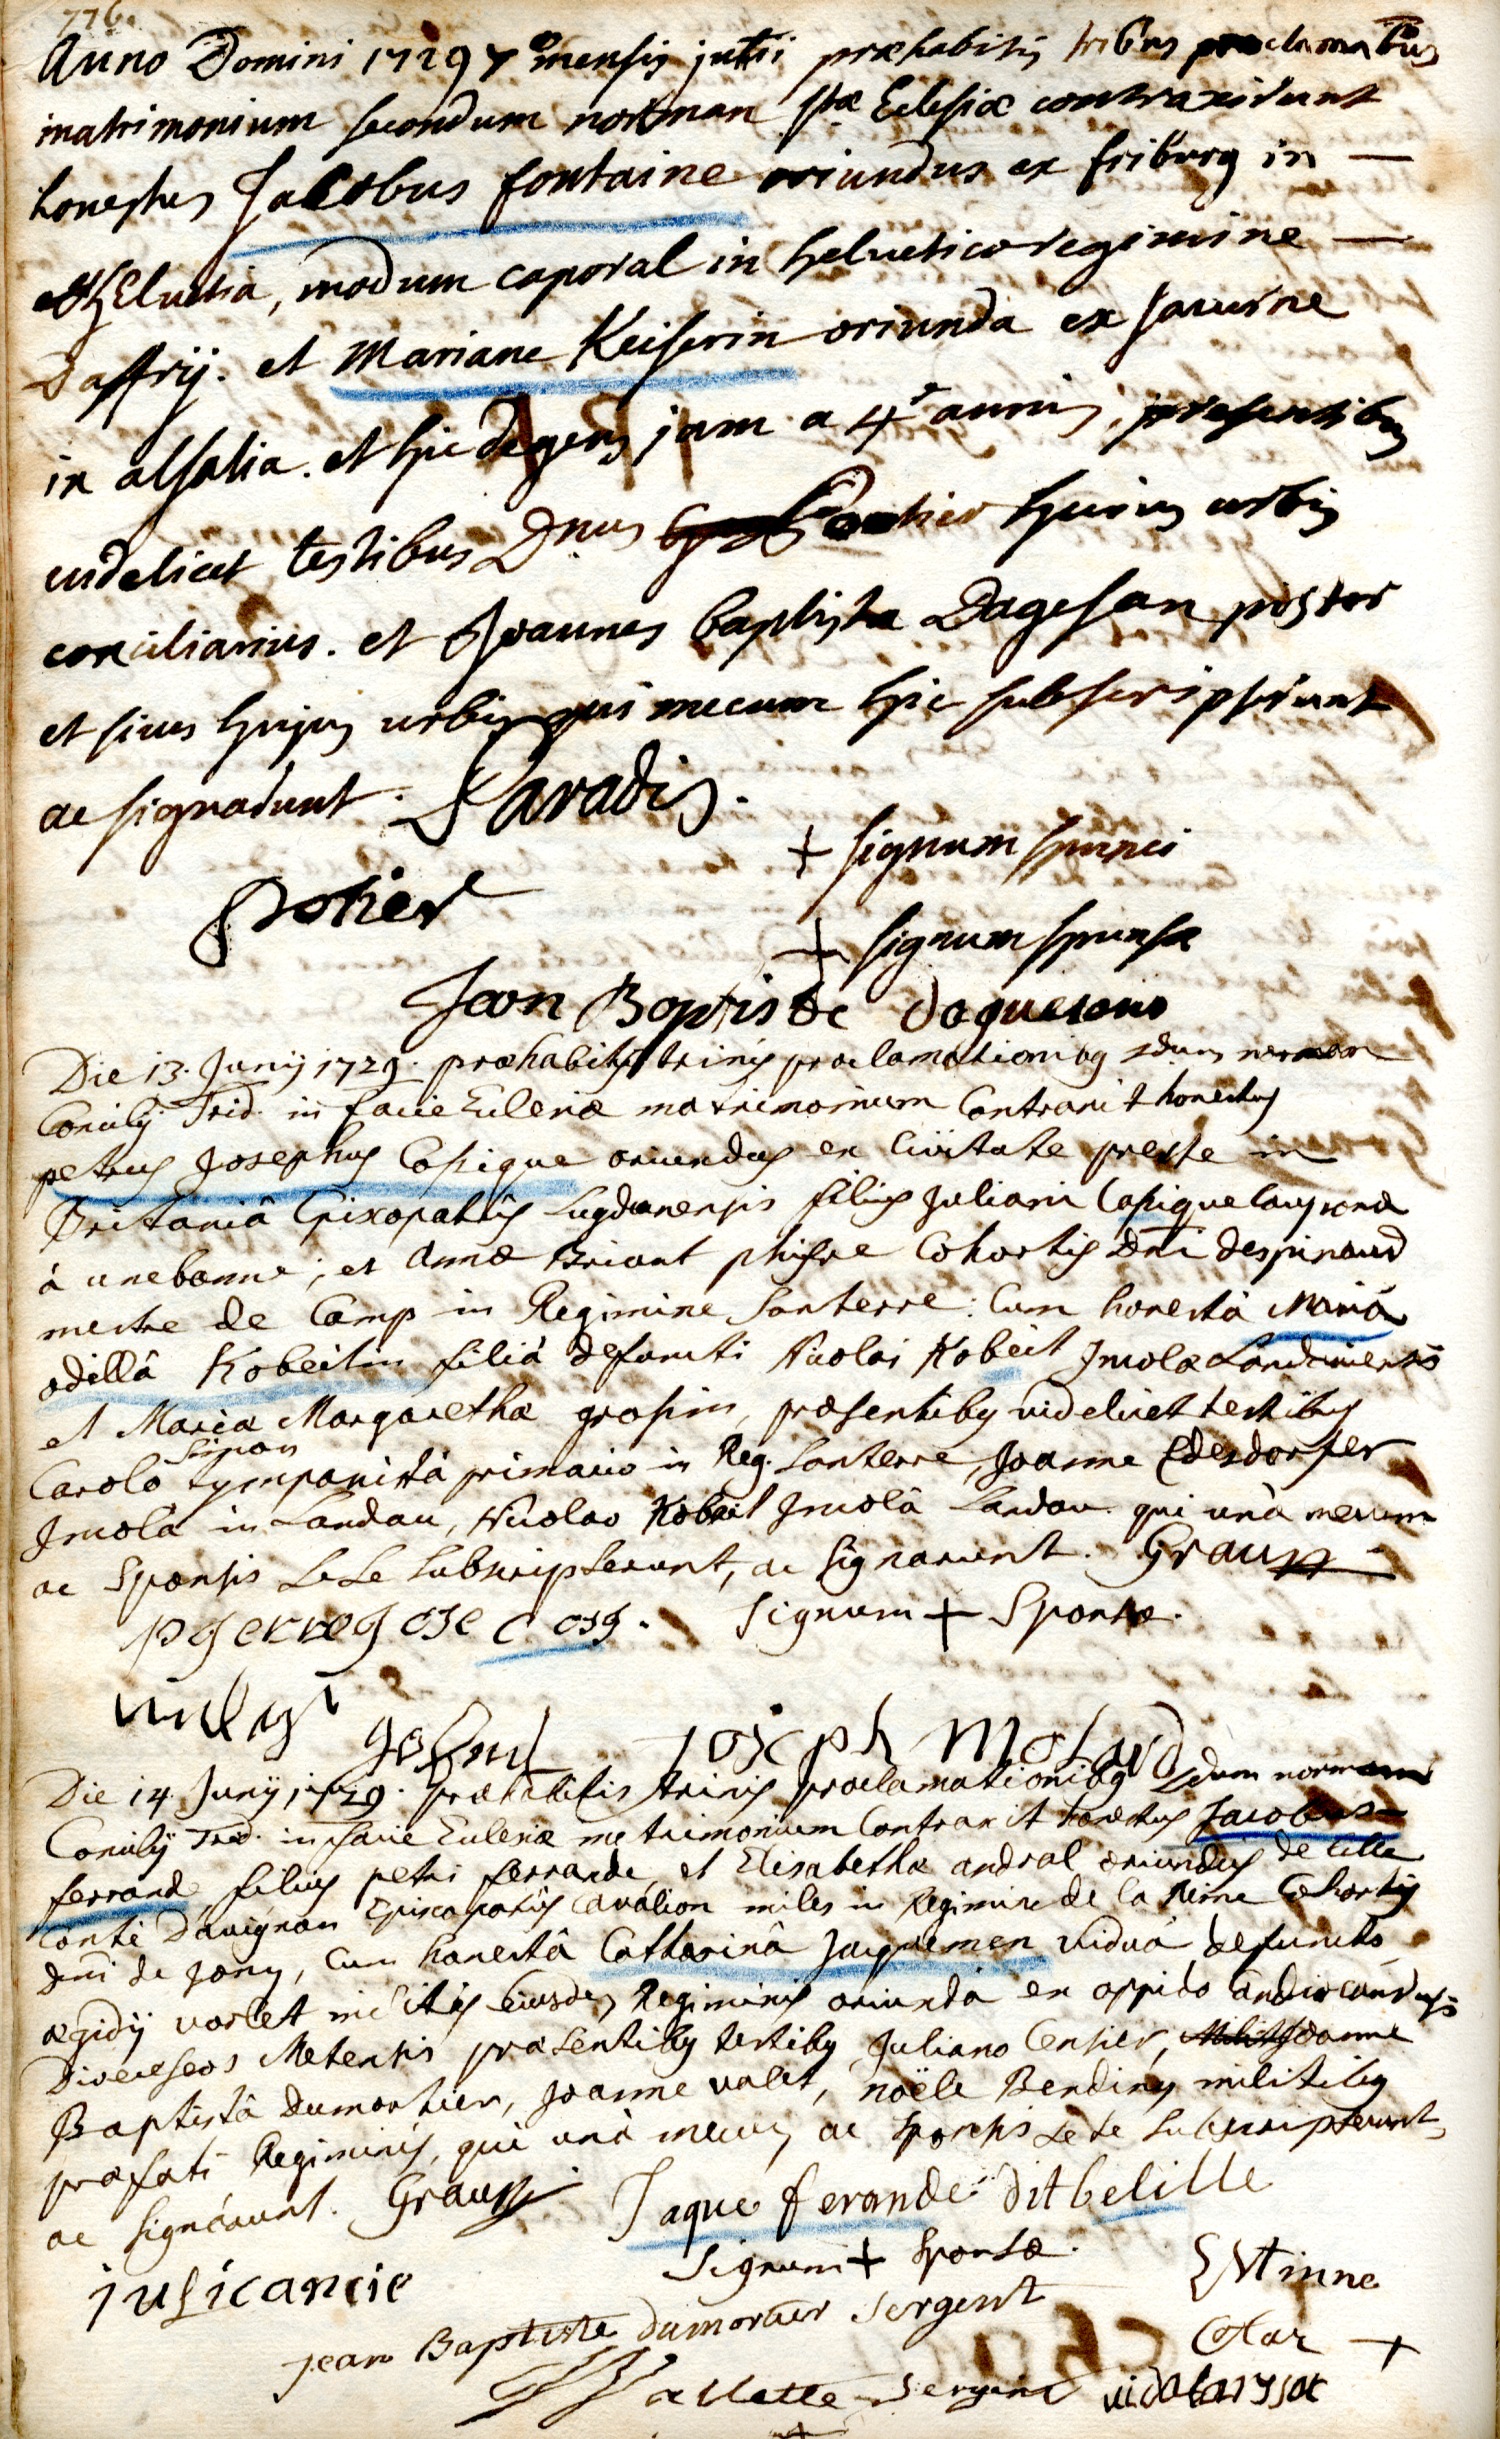 776.
Anno Domini 1729 7 mensis julii præhabitis tribus proclamatibus
matrimonium secondum norman stæ Eclesiæ contraxerunt
honestus Jacobus fontaine oriundus ex friburg in —
helvetia, modum caporal in helvetico regimine —
Daffrij. et Mariane Keiserin oriunda ex saverne
in alsatia. et hic degens jam a 4 annis, presentibus
videlicet testibus Dnus huius urbis
consiliarius. et Joannes baptista Dagesan pistor
et sives hujus urbis qui mecum hic subscripserunt
ac signarunt. Paradis.
+ signum spunci
Potier
+ signum spunsæ
Jean Baptiste daguesano
Die 13. Junij 1729. præhabitis trinis proclamationibq sdum norman
Concilij Trid. in facie Eclesiæ matrimonium Contraxit honestus
petrus Josephus Cosique oriundus ex Civitate preste in
Britaniâ Episcopatûs Lugdunensis filius Juliani Cosique
à unebanne; et Annæ Briant Cohortis Dni despinaud
mestre de Camp in Regimine Santerre: Cum honestâ Mariâ
odillâ Kobeitin filiâ defuncti Nicolai Kobeit Jncolæ Landaviensis
et Mariæ Margarethæ grosin, præsentibq videlicet testibus
Simon
Carolo tympanistâ primario in Reg. Santerre, Joanne Edesdorfer
Jncolâ in Landau, Nicolao Kobeit Jncolâ Landau qui unà mecum
ac Sponsis sese subscripserunt, ac signarunt. Graus
pgerregose cosg. Signum + Sponsæ.
joseph Molard
Die 14. Junij 1729. præhabitis trinis proclamationibq sdum normam
Concilij Trid. in facie Eclesiæ matrimonium Contraxit honestus Jacobus
ferrand, filius petri ferrande, et Elisabethæ andral oriundus de lille
Conté Davignon Episcopatûs Cavalion miles in Regimine de la Reine Cohortis
dni de Jony, Cum honestâ Catharinâ Jacquemen viduâ defuncto
ægidij varlet militis eiusdem Regiminis oriundâ ex oppido
Dioeceseos Metensis præsentibq testibq Juliano Censier, Joanne
Baptistâ Dumortier, Joanne valet, noële Bendiny militibq
præfati Regiminis, qui unà mecum ac Sponsis sese subscripserunt,
ac signarunt. Graus Jaque ferande dit belille
Signum + Sponsæ.
julicancie Estinne
jean Baptiste dumortier sergent Colar +
allette sergent